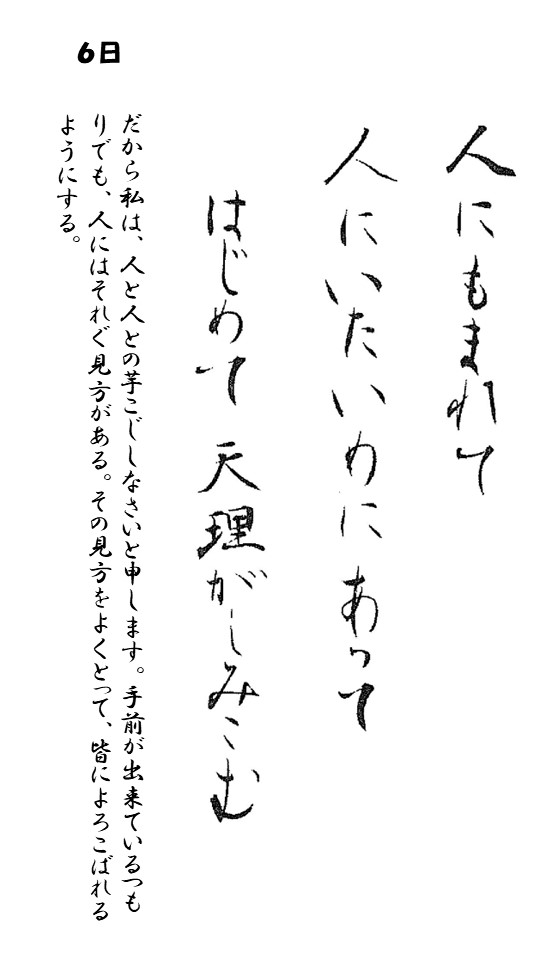 6日
人にもまれて
人にいたいめにあって
はじめて天理がしみこむ
だから私は、人と人との芋こじしなさいと申します。手前が出来ているつも
りでも、人にはそれ〲見方がある。その見方をよくとって、皆によろこばれる
ようにする。